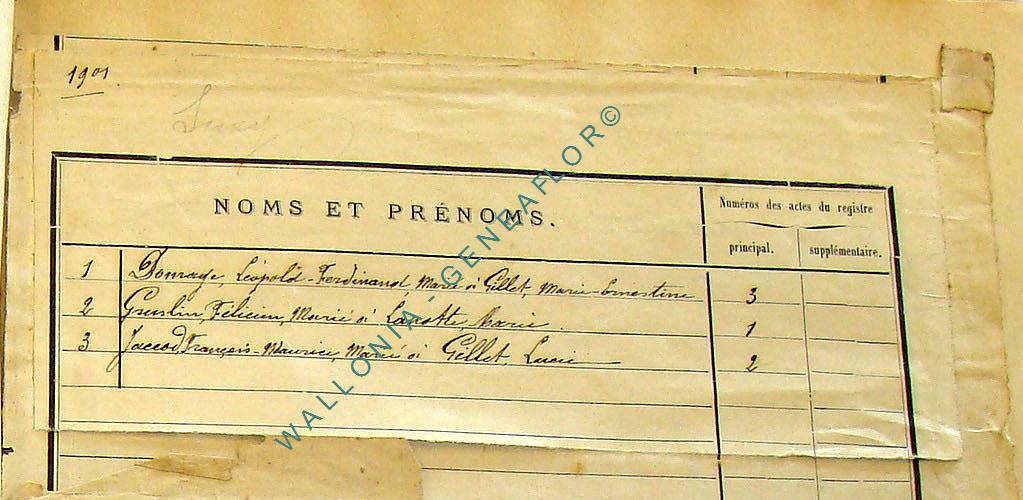 1901
NOMS ET PRÉNOMS.
Numéros des actes du registre
principal. supplémentaire.
1 Domage, Léopold-Ferdinand, Marié à Gillet, Marie-Ernestine 3
2 Félicien, Marié à Lacotte, Marie 1
3 Jaccod, François-Maurice, Marié à Gillet, Lucie 2
WALLONIA-GENEAFLOR©